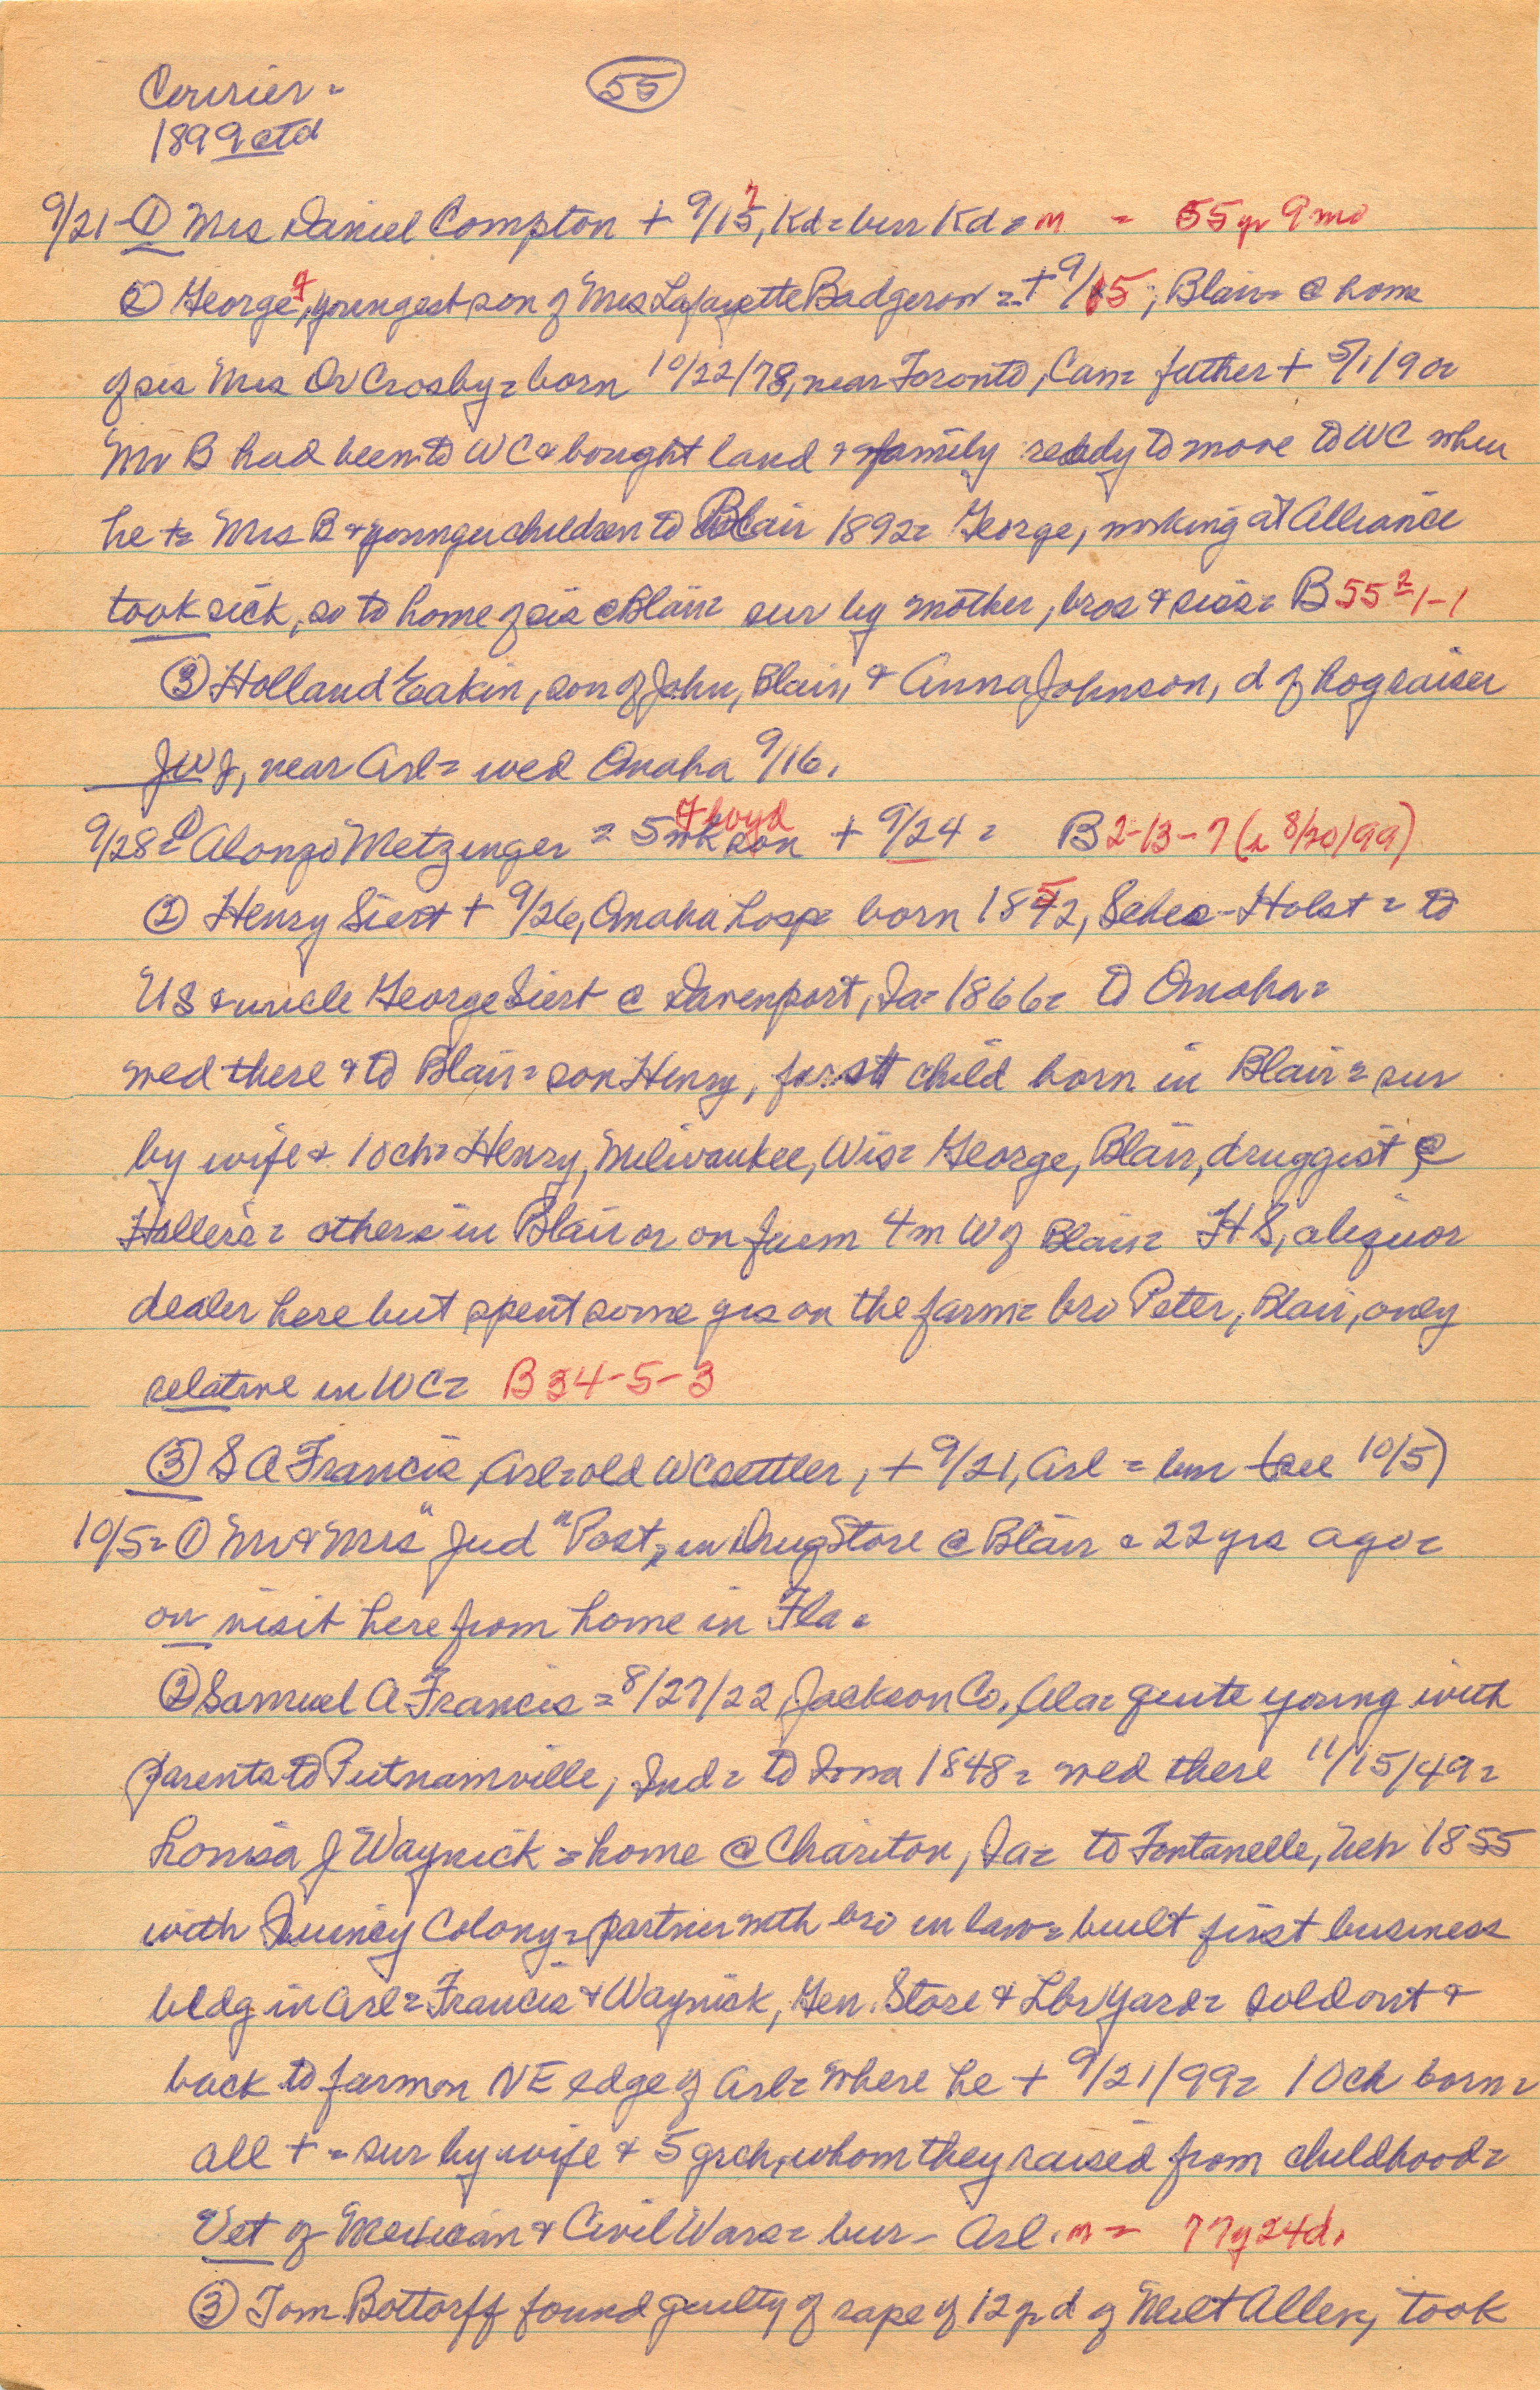 Courier =
55
1899 ctd
9/21 - ① Mrs Daniel Compton + 9/15, 7 Kd = bur Kd = m = 55 yr 9 mo
② George, youngest son of Mrs Lafayette Badgerow = + 9/15, Blair = @ home
of sis Mrs Ov Crosby = born 10/22/78, near Toronto, Can = father + 5/1/92
Mr B had been to WC & bought land & family ready to move to WC when
he + = Mrs B & younger children to Blair 1892 = George, working at Alliance
took sick, so to home of sis @ Blair = sur by mother, bros & siss = B 55 2-1-1
③ Holland Eakin, son of John, Blair, & Anna Johnson, d of hograiser
JWJ, near Arl = wed Omaha 9/16.
9/28 = ① Alonzo Metzinger = 5 wk son Floyd + 9/24 = B 2-13-7 (b 8/20/99)
② Henry Siert + 9/26, Omaha hosp = born 1852, Schles-Holst = to
US & uncle George Siert @ Davenport, Ia = 1866 = to Omaha =
wed there & to Blair = son Henry, first child born in Blair = sur
by wife & 10 ch = Henry, Milwaukee, Wis = George, Blair, druggist @
Haller's = others in Blair or on farm 4 m W of Blair = HS, a liquor
dealer here but spent some yrs on the farm = bro Peter, Blair, only
relative in WC = B 34-5-3
③ S A Francis, Arl = old WC settler, + 9/21, Arl = bur (see 10/5)
10/5 = ① Mr & Mrs "Jud" Post, in Drug Store @ Blair = 22 yrs ago =
on visit here from home in Fla =
② Samuel A Francis = 8/27/22, Jackson Co, Ala = quite young with
parents to Putnamville, Ind = to Iowa 1848 = wed there 11/15/49 =
Louisa J Waynick = home @ Chariton, Ia = to Fontanelle, Neb 1855
with Quincy Colony = partner with bro in law = built first business
bldg in Arl = Francis & Waynick, Gen. Store & Lbr Yard = sold out &
back to farm on NE edge of Arl = where he + 9/21/99 = 10 ch born =
all + = sur by wife & 5 grch, whom they raised from childhood =
Vet of Mexican & Civil Wars = bur - Arl. m = 77y 24d.
③ Tom Bottorff found guilty of rape of 12 yr d of Milt Allen, took